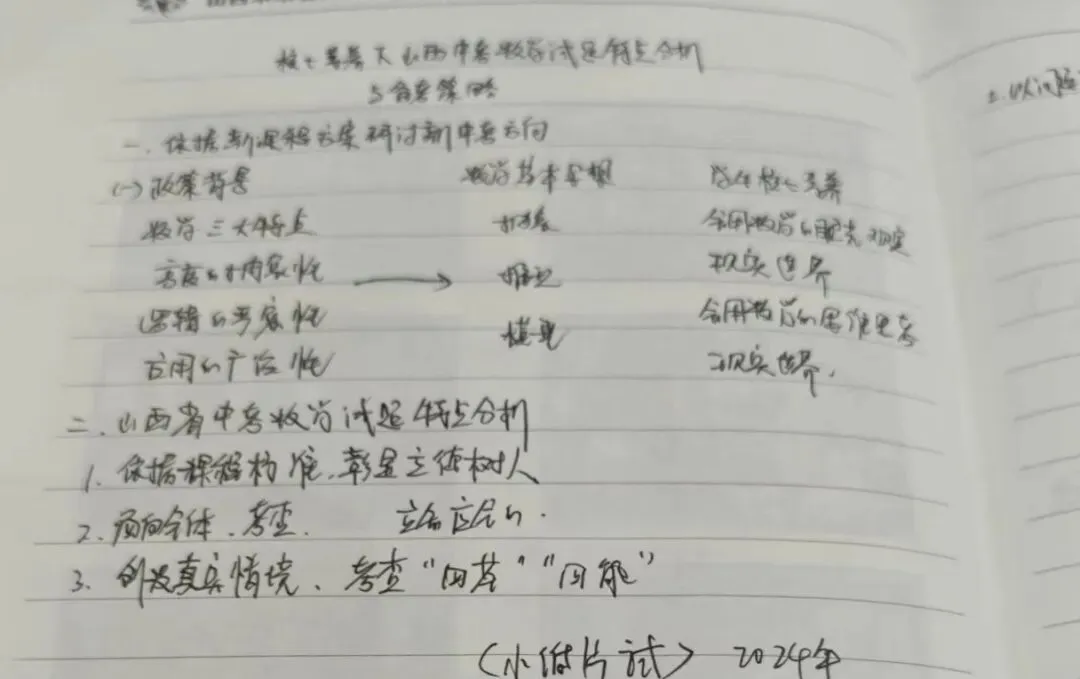 核心素养下山西中考数学试题特点分析
与备考策略
一、依据新课程方案研讨新中考方向
(一)政策背景 数学基本思想 学生核心素养
数学三大特点 抽象 会用数学的眼光观察
高度的抽象性 → 推理 现实世界
逻辑的严密性 模型 会用数学的思维思考
应用的广泛性 现实世界.
二、山西省中考数学试题特点分析
1. 依据课程标准,彰显立德树人
2. 面向全体、考查. 立
3. 创设真实情境、考查“四基”“四能”
2024年
2.以问题